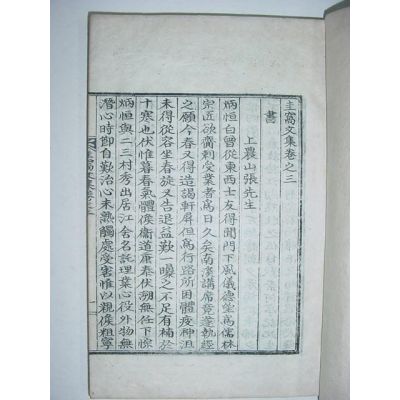 圭窩文集卷之二
書
上農山張先生
炳恒白曾從東西士友得聞門下風儀德望爲儒林
宗匠欲齎刺受業者爲日久矣南漢講席竟蓬執經
之願今春又得造謁軒屏但爲行路所困體疲神沮
未得從容坐春旋又告退益歎一曝之不足有補於
十寒也伏惟暮春氣體候衛道康泰伏溯無任下悰
炳恒與二三村秀出居江舍名託理業心役外物無
潛心時節自歎治心未熟觸處受害惟以親候粗寧